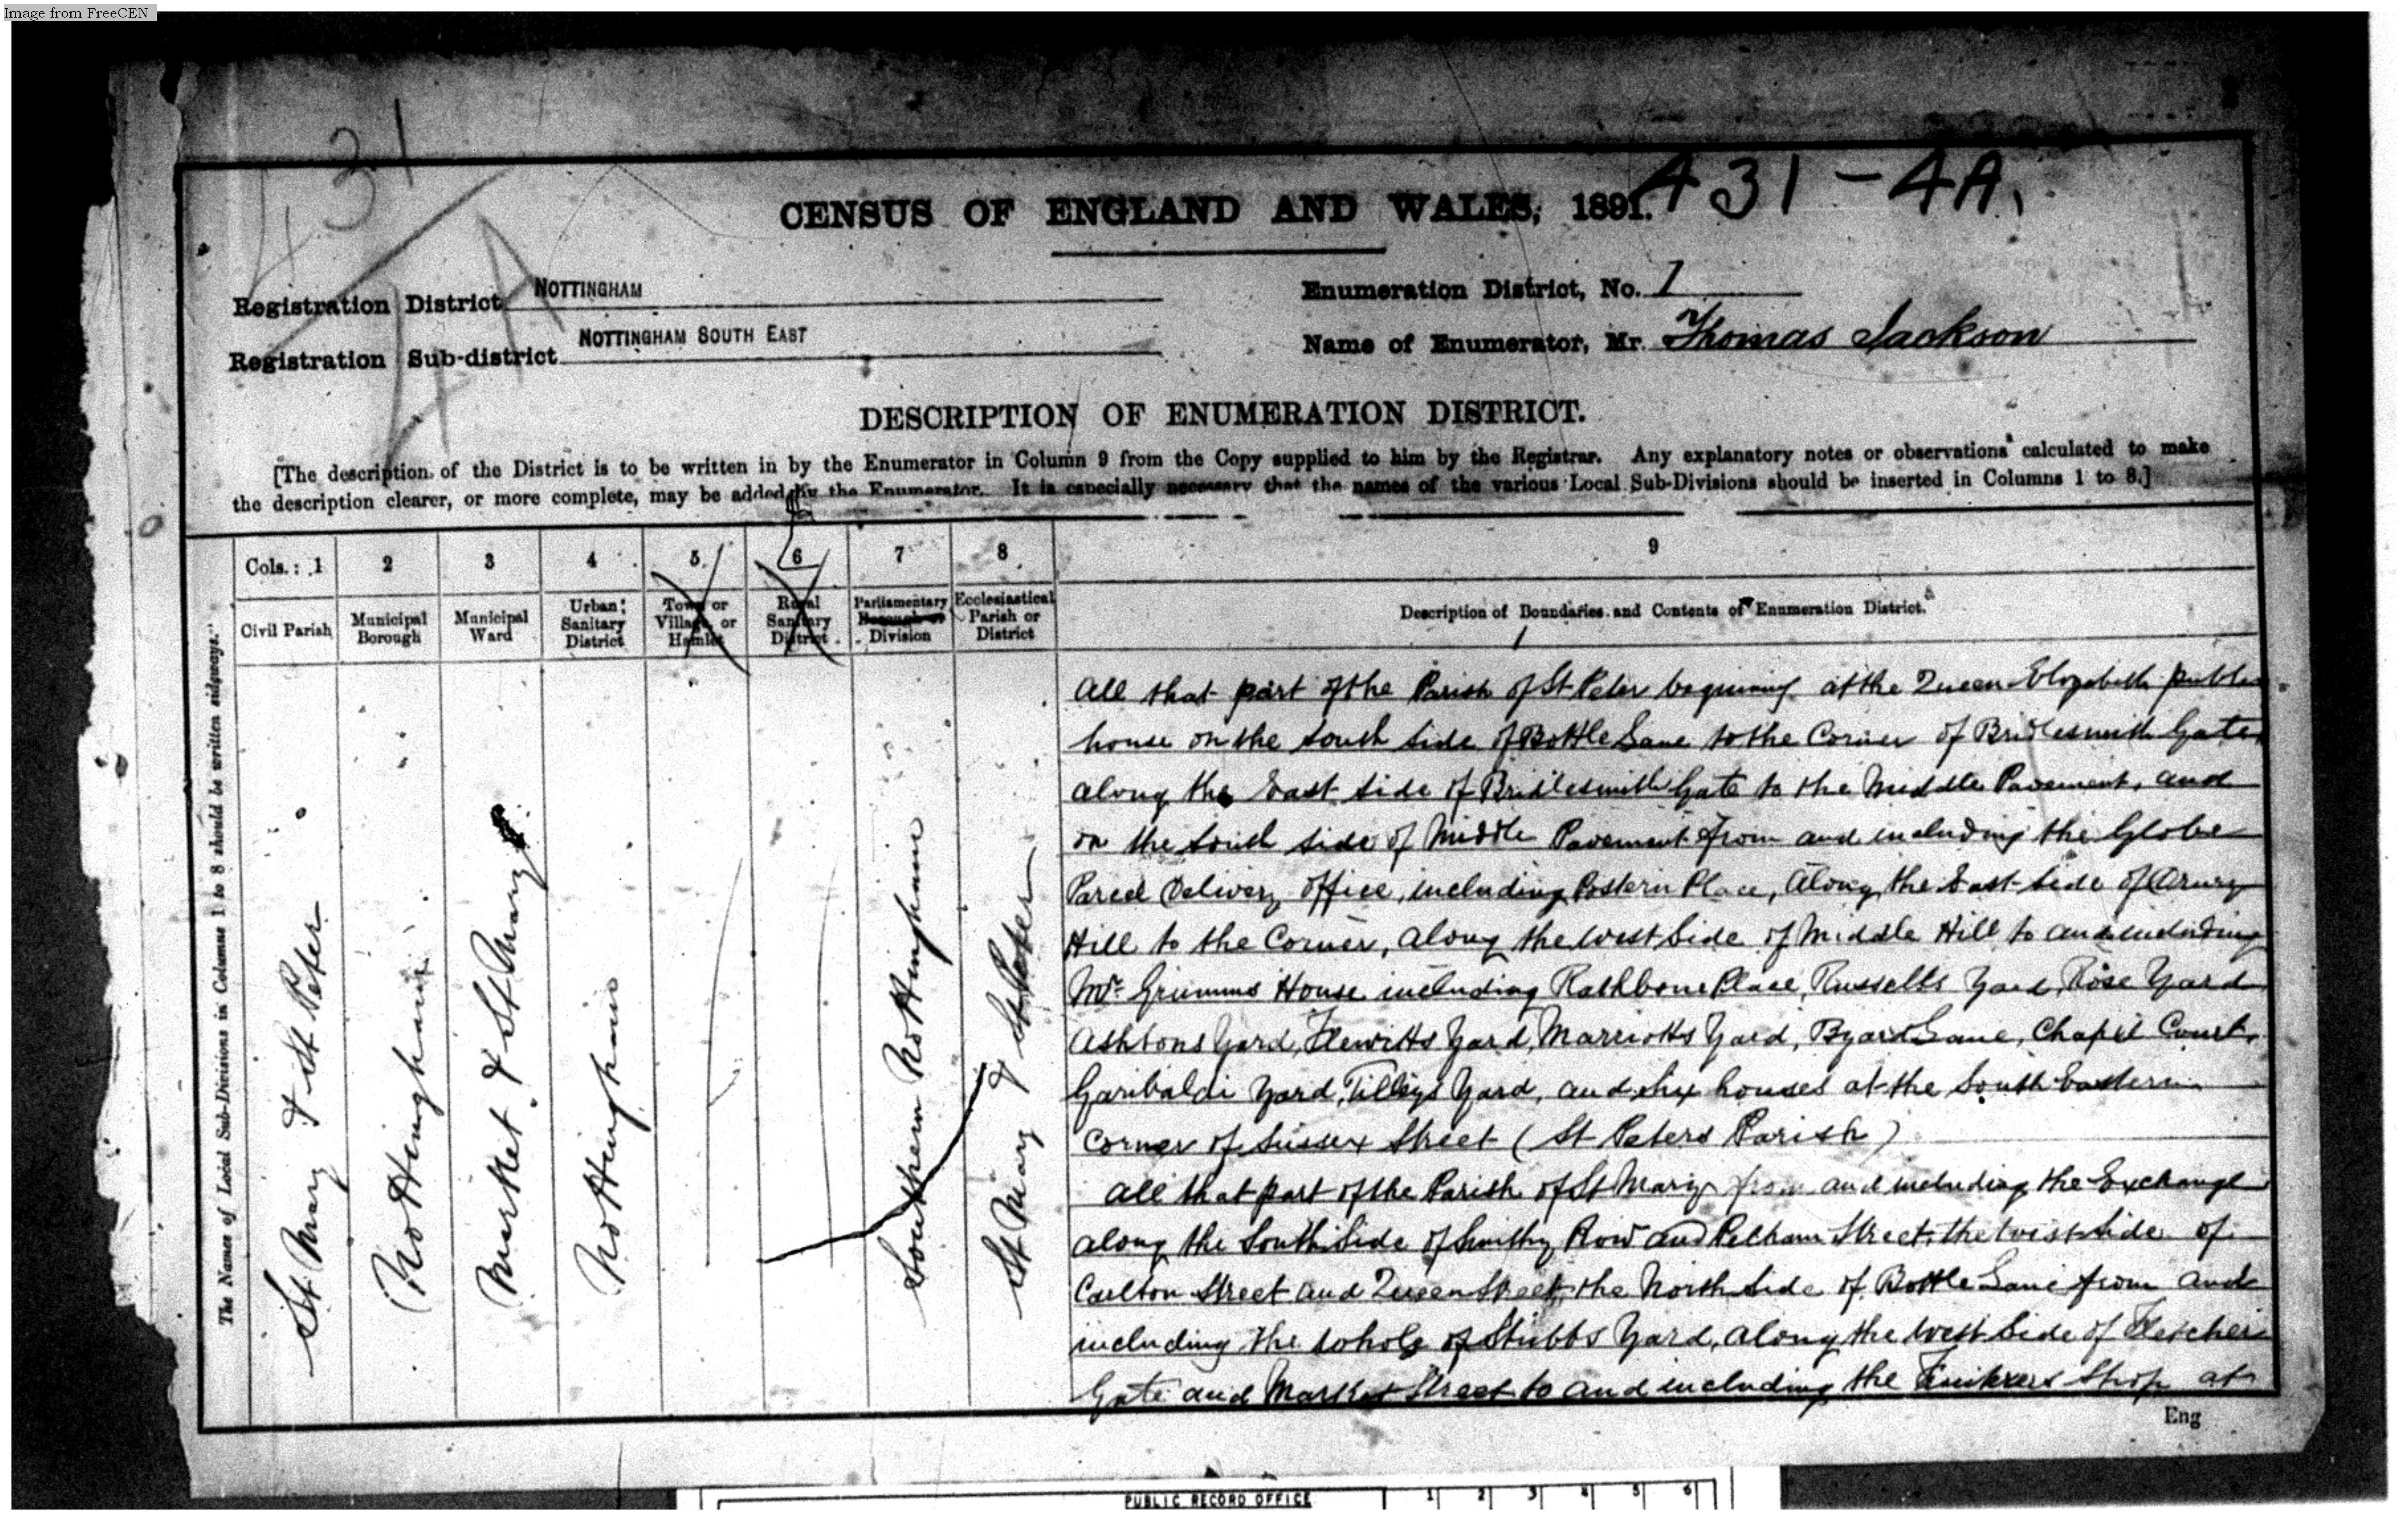 Image from FreeCEN
431
4A
CENSUS OF ENGLAND AND WALES, 1891.
431-4A.
Registration District NOTTINGHAM
Enumeration District, No. 1
Registration Sub-district NOTTINGHAM SOUTH EAST
Name of Enumerator, Mr. Thomas Jackson
DESCRIPTION OF ENUMERATION DISTRICT.
[The description of the District is to be written in by the Enumerator in Column 9 from the Copy supplied to him by the Registrar. Any explanatory notes or observations calculated to make
the description clearer, or more complete, may be added by the Enumerator. It is especially necessary that the names of the various Local Sub-Divisions should be inserted in Columns 1 to 8.]
The Names of Local Sub-Divisions in Columns 1 to 8 should be written sideways."
Cols.: 1 2 3 4 5 6 7 8 9
Civil Parish
Municipal Borough
Municipal Ward
Urban Sanitary District
Town or Village or Hamlet
Rural Sanitary District
Parliamentary Borough or Division
Ecclesiastical Parish or District
Description of Boundaries and Contents of Enumeration District.
St Mary & St Peter
Nottingham
Market & St Mary
Nottingham
Southern Nottingham
St Mary & St Peter
All that part of the Parish of St Peter beginning at the Queen Elizabeth public
house on the South Side of Bottle Lane to the Corner of Bridlesmith Gate,
along the East Side of Bridlesmith Gate to the Middle Pavement, and
on the South Side of Middle Pavement from and including the Globe
Parcel Delivery Office, including Postern Place, Along the East Side of Drury
Hill to the Corner, along the West Side of Middle Hill to and including
Mr Grimms House including Rathbone Place, Russells Yard, Rose Yard
Ashtons Yard, Flewitts Yard, Marriotts Yard, Byard Lane, Chapel Court,
Garibaldi Yard, Tilleys Yard, and Six houses at the South Eastern
Corner of Sussex Street (St Peters Parish)
All that part of the Parish of St Mary from and including the Exchange
along the South Side of Smithy Row and Pelham Street, the West Side of
Carlton Street and Queen Street, the North Side of Bottle Lane from and
including the whole of Stubbs Yard, along the West Side of Fletcher
Gate and Market Street to and including the Shop at
Eng
PUBLIC RECORD OFFICE 1 2 3 4 5 6